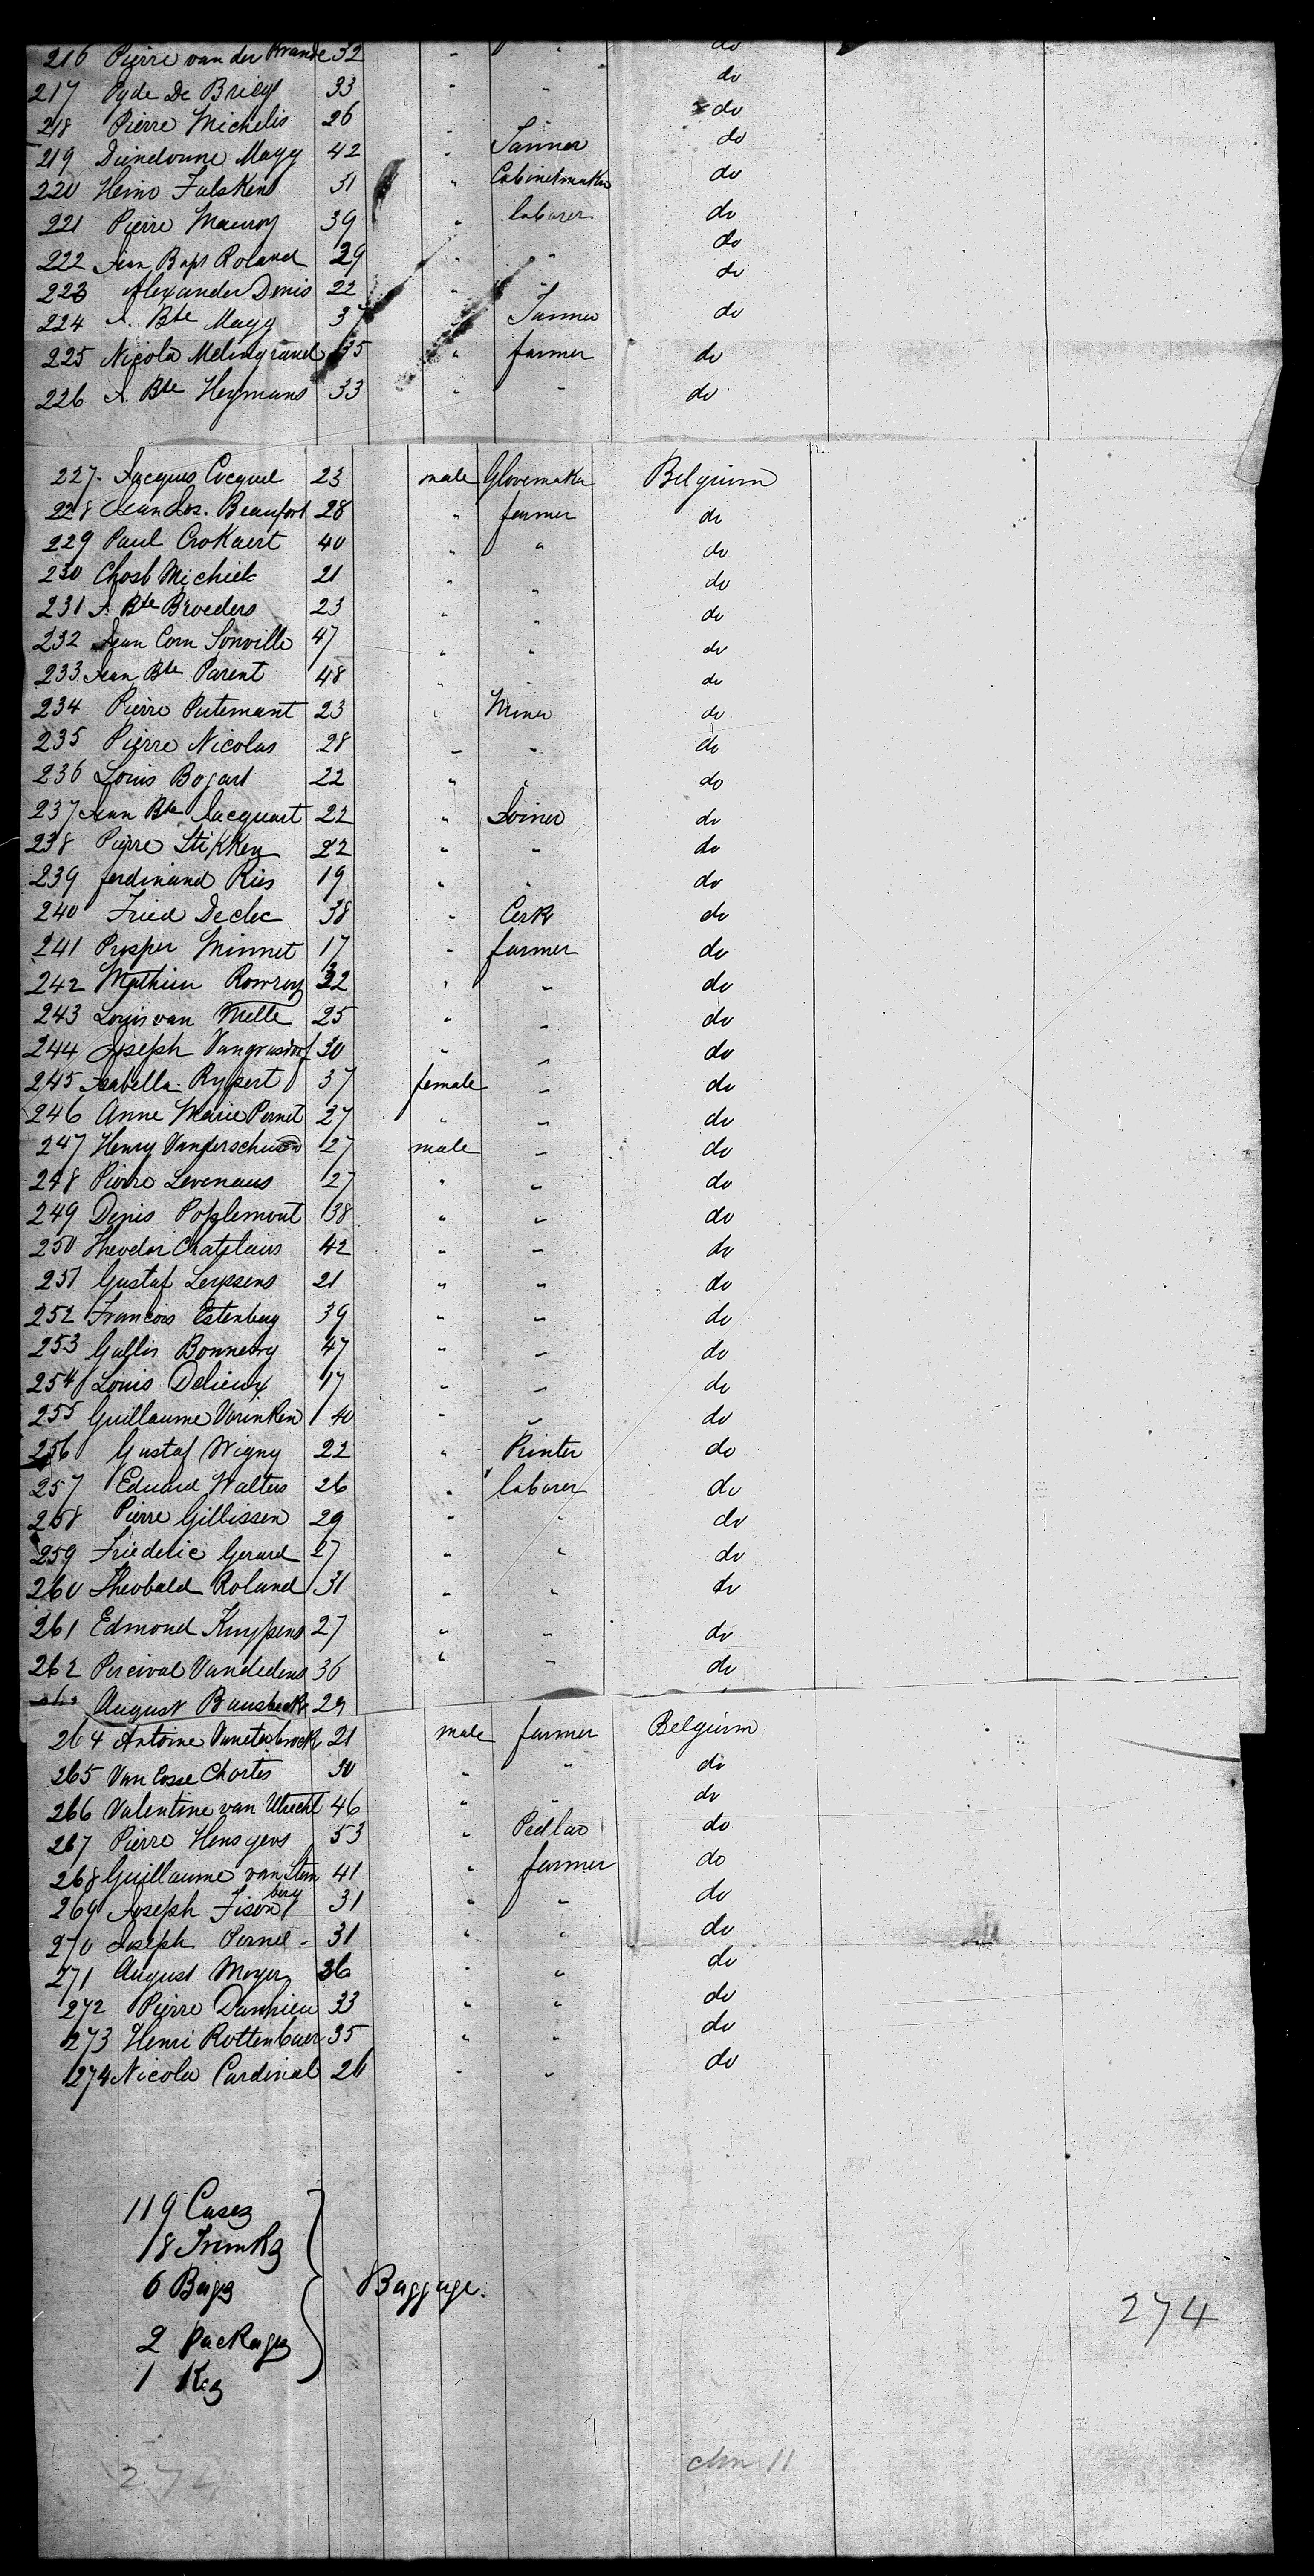 216 Pierre van der Brande 32 " " do
217 Pyde De Brieys 33 " " do
218 Pierre Michelis 26 " " do
219 Diendonne Magy 42 " Tanner do
220 Heinr Falsken 31 " Cabinetmaker do
221 Pierre Mauroy 39 " laborer do
222 Jean Bapt Roland 29 " " do
223 Alexander Denis 22 " " do
224 J. Bte Magy 37 " Tanner do
225 Nicola Melingrand 35 " farmer do
226 J. Bte Heymans 33 " " do
227. Jacques Cocquel 23 male Glovemaker Belgium
228 Jean Jos. Beaufort 28 " farmer do
229 Paul Crokaert 40 " " do
230 Michiels 21 " " do
231 J. Bte Broeders 23 " " do
232 Jean Corn Sonville 47 " " do
233. Jean Bte Parent 48 " " do
234 Pierre Putemant 23 " Miner do
235 Pierre Nicolas 28 " " do
236 Louis Bogart 22 " " do
237 Jean Bte Jacquart 22 " Joiner do
238 Pierre Stikken 22 " " do
239 ferdinand Ries 19 " " do
240 Fried Declec 38 " Cerk do
241 Prosper Minnet 17 " farmer do
242 Mathieu Rowroy 22 " " do
243 Louis van Melle 25 " " do
244 Joseph Vangrasdorf 30 " " do
245 Isabella Rypert 37 female " do
246 Anne Marie Pernet 27 " " do
247 Henry Vanderschuren 27 male " do
248 Pierre Levenaus 27 " " do
249 Denis Popplemont 38 " " do
250 Theodor Chatelains 42 " " do
251 Gustaf Leyssens 21 " " do
252 Francois Estenberg 39 " " do
253 Gallis Bonnewy 47 " " do
254 Louis Delieux 17 " " do
255 Guillaume Varinken 40 " " do
256 Gustaf Wigny 22 " Printer do
257 Eduard Walters 26 " laborer do
258 Pierre Gillissen 29 " " do
259 Friederic Gerard 27 " " do
260 Theobald Roland 31 " " do
261 Edmond Kuypens 27 " " do
262 Percival Vandedens 36 " " do
263 August Bausbeck 29
264 Antoine Vanetesbrock 21 male farmer Belgium
265 Van Cosse Charles 30 " " do
266 Valentine van Utrecht 46 " " do
267 Pierre Hensgens 53 " Pedlar do
268 Guillaume van Stenberg 41 " farmer do
269 Joseph Fison 31 " " do
270 Joseph Pernel 31 " " do
271 August Meyer 36 " " do
272 Pierre Danhieu 33 " " do
273 Henri Rottenbuer 35 " " do
274 Nicola Cardinal 26 " " do
119 Cases
18 Trunks
6 Bags
Baggage.
2 packages
1 Keg
274
274
11